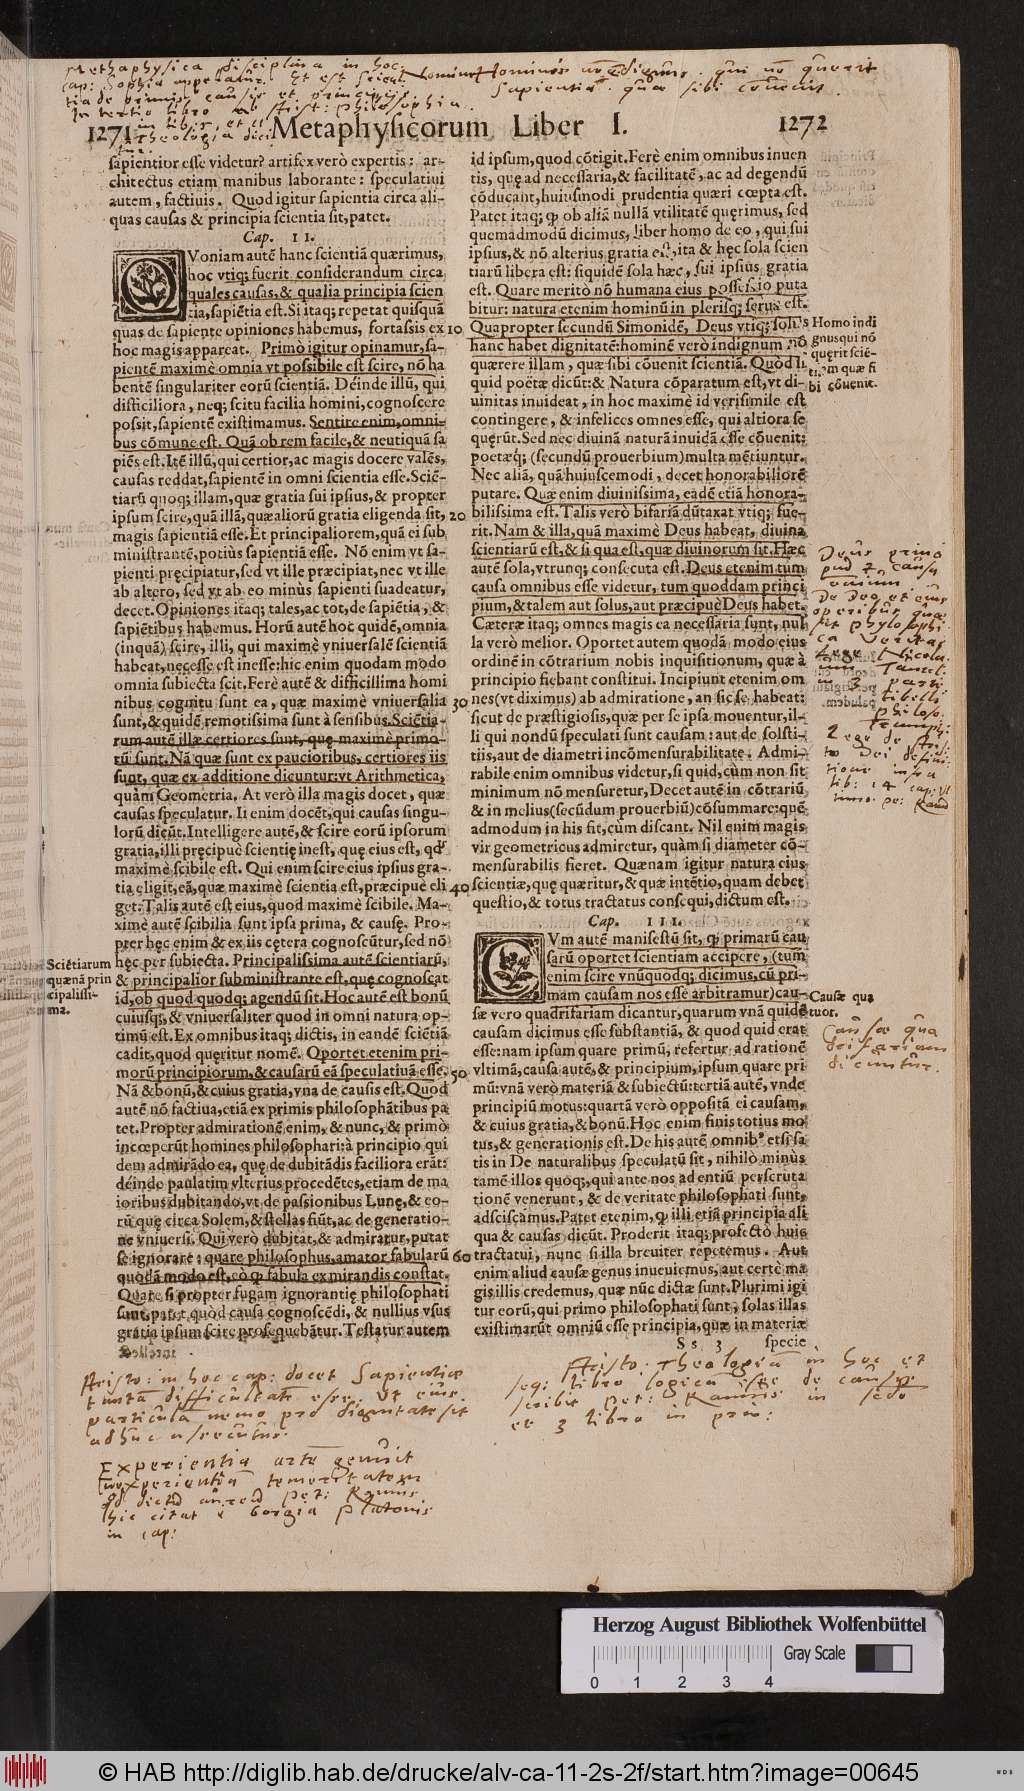 Methaphysica disciplina in hoc
cap: Sophia appellatur. Et est scient
tia de primis causis et principijs.
In tertio libro
Theologia
qui nō querit
Sapientiā quæ sibi convenit.
1271 Metaphysicorum Liber I. 1272
sapientior esse videtur? artifex verò expertis: ar-
chitectus etiam manibus laborante: speculatiui
autem, factiuis. Quod igitur sapientia circa ali-
quas causas & principia scientia sit, patet.
Cap. II.
QVoniam autē hanc scientiā quærimus,
hoc vtiq; fuerit considerandum circa
quales causas, & qualia principia scien
tia, sapiētia est. Si itaq; repetat quisquā
quas de sapiente opiniones habemus, fortassis ex 10
hoc magis appareat. Primò igitur opinamur, sa-
pientē maximè omnia vt possibile est scire, nō ha
bentē singulariter eorū scientiā. Déinde illū, qui
difficiliora, neq; scitu facilia homini, cognoscere
possit, sapientē existimamus. Sentire enim, omni-
bus cōmune est. Quā ob rem facile, & neutiquā sa
piēs est. Itē illū, qui certior, ac magis docere valēs,
causas reddat, sapientē in omni scientia esse. Sciē-
tiarū quoq; illam, quæ gratia sui ipsius, & propter
ipsum scire, quā illā, quæ aliorū gratia eligenda sit, 20
magis sapientiā esse. Et principaliorem, quā ei sub
ministrantē, potiùs sapientiā esse. Nō enim vt sa-
pienti pręcipiatur, sed vt ille præcipiat, nec vt ille
ab altero, sed vt ab eo minùs sapienti suadeatur,
decet. Opiniones itaq; tales, ac tot, de sapiētia, &
sapiētibus habemus. Horū autē hoc quidē, omnia
(inquā) scire, illi, qui maximè vniuersalē scientiā
habeat, necesse est inesse: hic enim quodam modo
omnia subiecta scit. Ferè autē & difficillima homi
nibus cognitu sunt ea, quæ maximè vniuersalia 30
sunt, & quidē remotissima sunt à sensibus. Sciētia-
rum autē illæ certiores sunt, quę maximè primo-
rū sunt. Nā quæ sunt ex paucioribus, certiores iis
sunt, quæ ex additione dicuntur: vt Arithmetica,
quàm Geometria. At verò illa magis docet, quæ
causas speculatur. Ii enim docēt, qui causas singu-
lorū dicūt. Intelligere autē, & scire eorū ipsorum
gratia, illi pręcipuè scientię inest, quę eius est, qđ
maximè scibile est. Qui enim scire eius ipsius gra-
tia eligit, eā, quæ maximè scientia est, præcipuè eli 40
get: Talis autē est eius, quod maximè scibile. Ma-
ximè autē scibilia sunt ipsa prima, & causę. Pro-
pter hęc enim & ex iis cętera cognoscūtur, sed nō
hęc per subiecta. Principalissima autē scientiarū,
& principalior subministrante est, quę cognoscat
id, ob quod quodq; agendū sit. Hoc autē est bonū
cuiusq;, & vniuersaliter quod in omni natura op-
timū est. Ex omnibus itaq; dictis, in eandē sciētiā
cadit, quod quęritur nomē. Oportet etenim pri-
morū principiorum, & causarū eā speculatiuā esse. 50
Nā & bonū, & cuius gratia, vna de causis est. Quod
autē nō factiua, etiā ex primis philosophātibus pa
tet. Propter admirationē enim, & nunc, & primò
incœperūt homines philosophari: à principio qui
dem admirādo ea, quę de dubitādis faciliora erāt:
déinde paulatim vlterius procedētes, etiam de ma
ioribus dubitando, vt de passionibus Lunę, & eo-
rū quę circa Solem, & stellas fiūt, ac de generatio-
ne vniuersi. Qui verò dubitat, & admiratur, putat
se ignorare: quare philosophus, amator fabularū 60
quodā modo est, eò ꝙ fabula ex mirandis constat.
Quare si propter fugam ignorantię philosophati
sunt, patet, quòd causa cognoscēdi, & nullius vsus
gratia ipsum scire prosequebātur. Testatur autem
Sciētiarum
quænā prin
cipalissi-
ma.
id ipsum, quod cōtigit. Ferè enim omnibus inuen
tis, quę ad necessaria, & facilitatē, ac ad degendū
cōducant, huiusmodi prudentia quæri cœpta est.
Patet itaq; ꝙ ob aliā nullā vtilitatē quęrimus, sed
quemadmodū dicimus, liber homo de eo, qui sui
ipsius, & nō alterius gratia est, ita & hęc sola scien
tiarū libera est: siquidē sola hæc, sui ipsius gratia
est. Quare meritò nō humana eius possessio puta
bitur: natura etenim hominū in plerisq; serua est.
Quapropter secundū Simonidē, Deus vtiq; solus
hanc habet dignitatē: hominē verò indignum nō
quærere illam, quæ sibi cōuenit scientiā. Quòd si
quid poëtæ dicūt: & Natura cōparatum est, vt di-
uinitas inuideat, in hoc maximè id verisimile est
contingere, & infelices omnes esse, qui altiora se
quęrūt. Sed nec diuinā naturā inuidā esse cōuenit:
poetæq́; (secundū prouerbium) multa mētiuntur.
Nec aliā, quā huiuscemodi, decet honorabiliorē
putare. Quæ enim diuinissima, eadē etiā honora-
bilissima est. Talis verò bifariā dūtaxat vtiq; fue-
rit. Nam & illa, quā maximè Deus habeat, diuina
scientiarū est, & si qua est, quæ diuinorum sit. Hæc
autē sola, vtrunq; consecuta est. Deus etenim tum
causa omnibus esse videtur, tum quoddam princi
pium, & talem aut solus, aut præcipuè Deus habet.
Cæteræ itaq; omnes magis ea necessaria sunt, nul
la verò melior. Oportet autem quodā modo eius
ordinē in cōtrarium nobis inquisitionum, quæ à
principio fiebant constitui. Incipiunt etenim om
nes (vt diximus) ab admiratione, an sic se habeat:
sicut de præstigiosis, quæ per se ipsa mouentur, il-
li qui nondū speculati sunt causam: aut de solsti-
tiis, aut de diametri incōmensurabilitate. Admi-
rabile enim omnibus videtur, si quid, cùm non sit
minimum nō mensuretur, Decet autē in cōtrariū,
& in melius (secūdum prouerbiū) cōsummare: quē
admodum in his fit, cùm discant. Nil enim magis
vir geometricus admiretur, quàm si diameter cō-
mensurabilis fieret. Quænam igitur natura eius
scientiæ, quę quæritur, & quæ intētio, quam debet
questio, & totus tractatus consequi, dictum est.
Cap. III.
CVm autē manifestū sit, ꝙ primarū cau
sarū oportet scientiam accipere, (tum
enim scire vnūquodq; dicimus, cū pri-
mam causam nos esse arbitramur) cau-
sæ vero quadrifariam dicantur, quarum vnā quidē
causam dicimus esse substantiā, & quod quid erat
esse: nam ipsum quare primū, refertur ad rationē
vltimā, causa autē, & principium, ipsum quare pri
mū: vnā verò materiā & subiectū: tertiā autē, vnde
principiū motus: quartā verò oppositā ei causam,
& cuius gratia, & bonū. Hoc enim finis totius mo
tus, & generationis est. De his autē omnibꝰ etsi sa
tis in De naturalibus speculatū sit, nihilò minùs
tamē illos quoq;, qui ante nos ad entiū perscruta
tionē venerunt, & de veritate philosophati sunt,
adsciscamus. Patet etenim, ꝙ illi etiā principia ali
qua & causas dicūt. Proderit itaq; profectò huic
tractatui, nunc si illa breuiter repetemus. Aut
enim aliud causæ genus inueniemus, aut certè ma
gis illis credemus, quæ nūc dictæ sunt. Plurimi igi
tur eorū, qui primo philosophati sunt, solas illas
existimarūt omniū esse principia, quæ in materiæ
Ss 3 specie
Homo indi
gnus qui nō
quęrit sciē-
tiam quæ si
bi cōuenit.
Deus primo
omnium
De Deo et eius
operibus quæ
sit phylosophi
ca veritas
Lege Nicolau
libelli
philoso.
Causæ qua
tuor.
Causæ qua
drifariam
dicuntur.
Aristo: in hoc cap: docet Sapientiæ
tantā difficultatē esse, ut eius
particula nemo pro dignitate sit
adhuc assecutus.
Experientia artē genuit
Inexperientia temeritatem
dictū aureū Pet: Ramus
hic citat è Gorgia Platonis
in cap:
Aristo: Theologiā in hoc et
seq: libro logicā esse de causis
scribit Pet: Ramus in scho
et 3 libro in prin:
Herzog August Bibliothek Wolfenbüttel
Gray Scale
0 1 2 3 4
© HAB http://diglib.hab.de/drucke/alv-ca-11-2s-2f/start.htm?image=00645